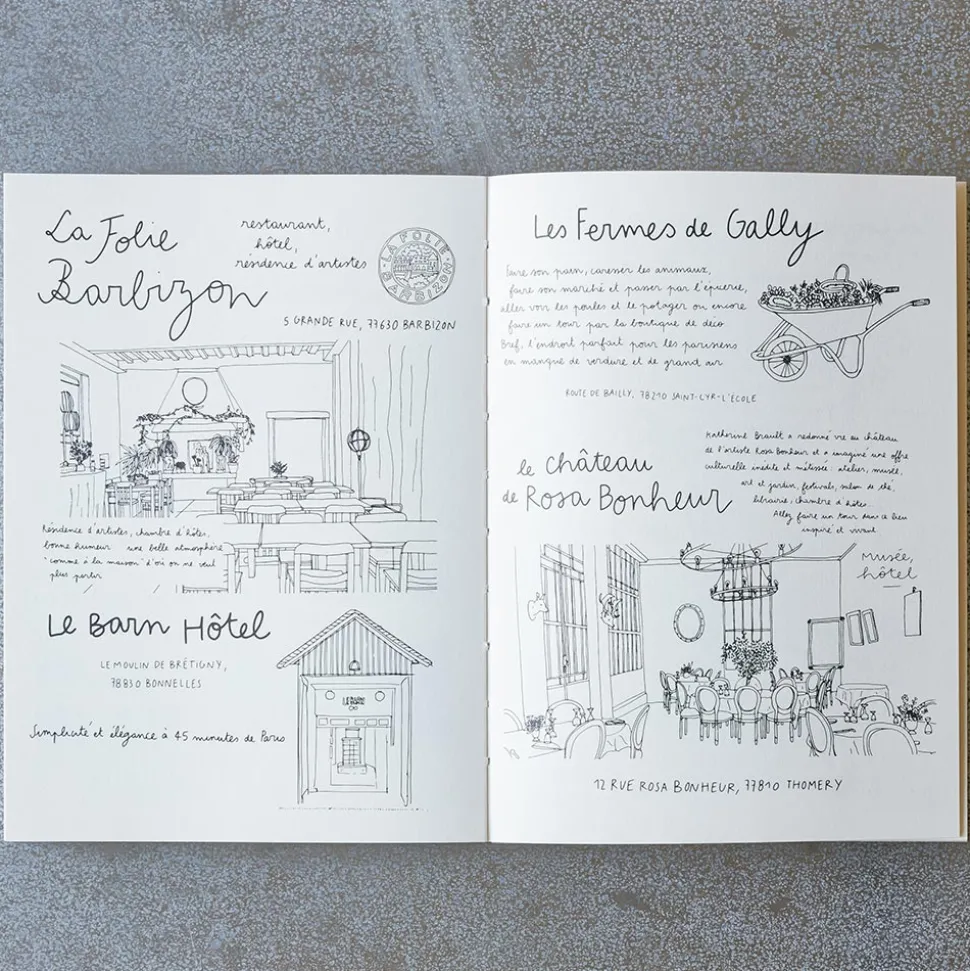 La Folie
Barbizon
restaurant,
hôtel,
résidence d'artistes
LA FOLIE
BARBIZON
5 GRANDE RUE, 77630 BARBIZON
Résidence d'artistes, chambre d'hôtes,
bonne humeur une belle atmosphère
"comme à la maison" d'où on ne veut
plus partir
Le Barn Hôtel
LE MOULIN DE BRÉTIGNY,
78830 BONNELLES
Simplicité et élégance à 45 minutes de Paris
Les Fermes de Gally
Faire son pain, caresser les animaux,
faire son marché et passer par l'épicerie,
aller voir les poules et le potager ou encore
faire un tour par la boutique de déco
Bref, l'endroit parfait pour les parisiens
en manque de verdure et de grand air
ROUTE DE BAILLY, 78210 SAINT-CYR-L'ÉCOLE
le Château
de Rosa Bonheur
Katherine Brault a redonné vie au château
de l'artiste Rosa Bonheur et a imaginé une offre
culturelle inédite et métissée: atelier, musée,
art et jardin, festivals, salon de thé,
librairie, chambre d'hôtes...
Allez faire un tour dans ce lieu
inspiré et vivant
Musée,
hôtel
12 RUE ROSA BONHEUR, 77810 THOMERY